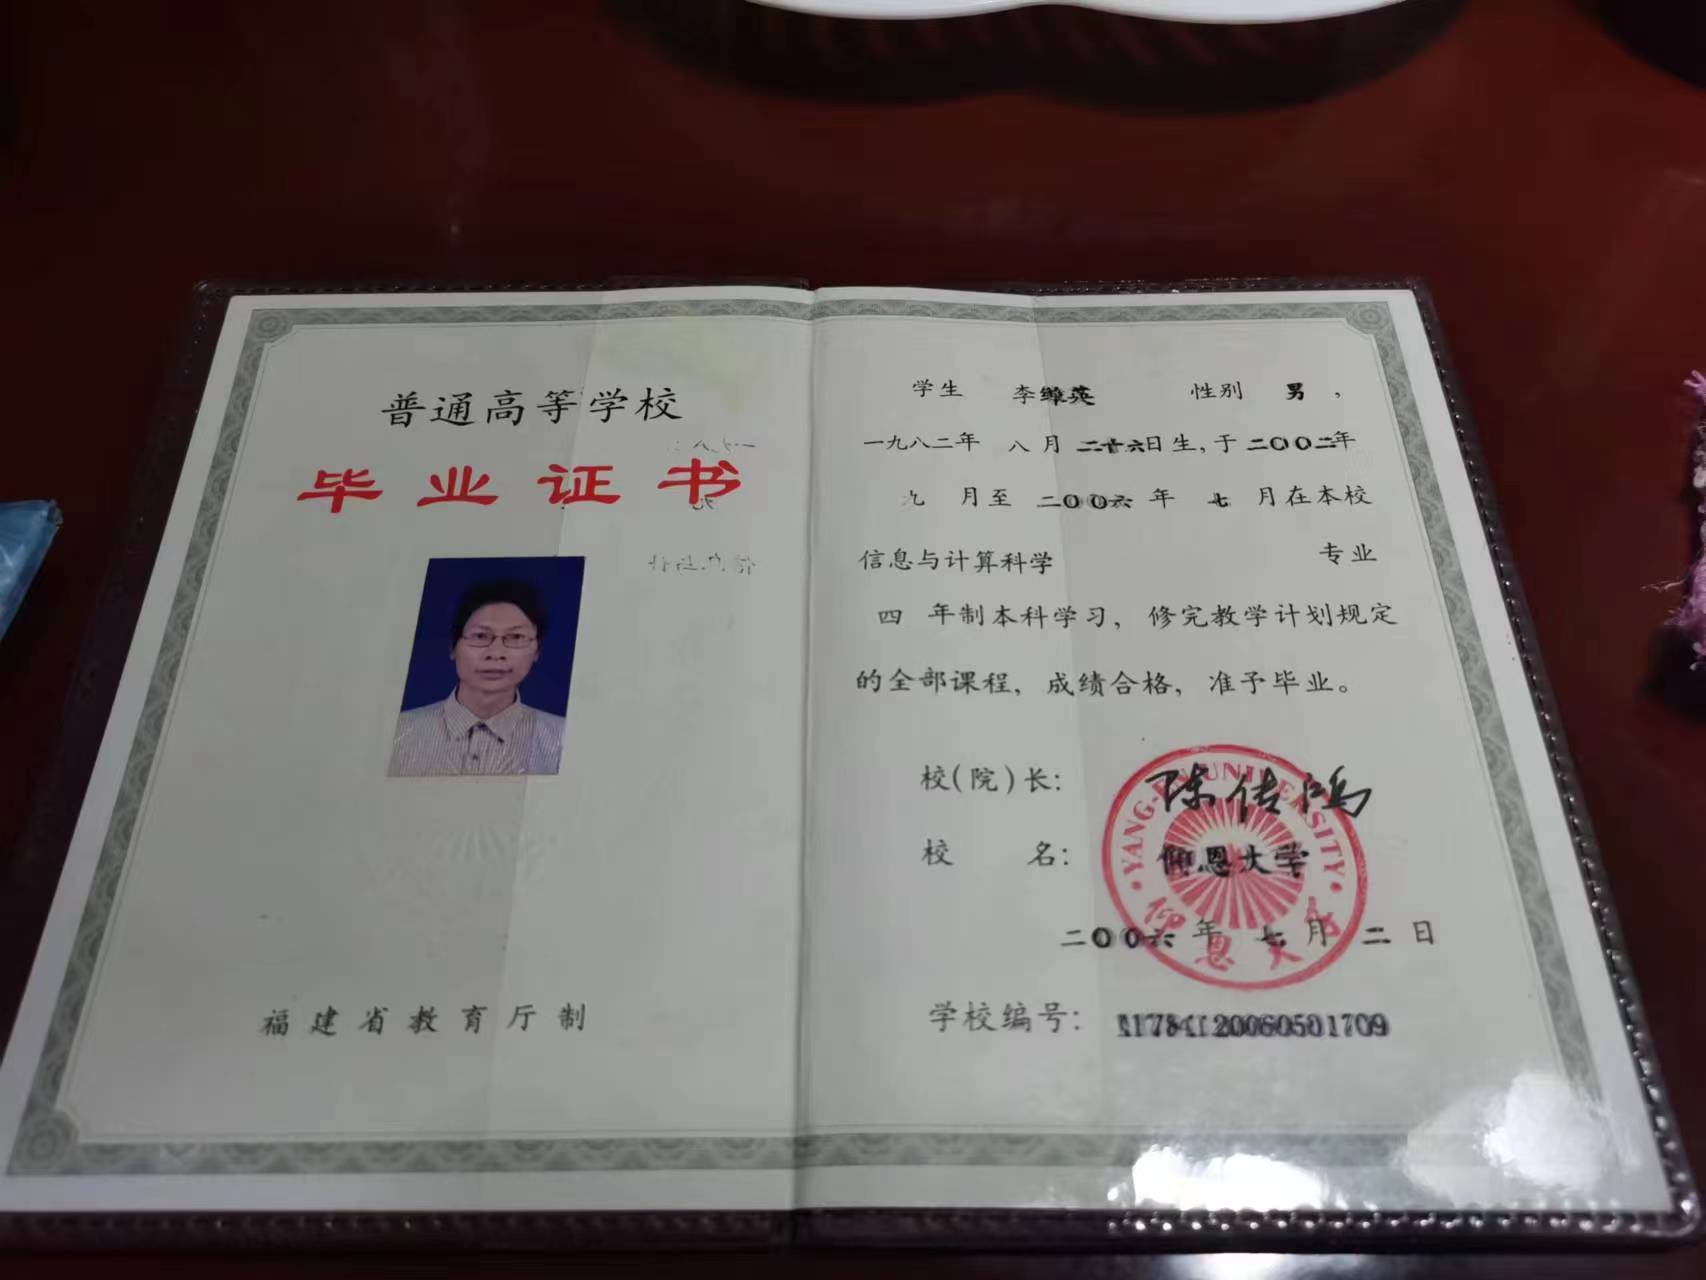 普通高等学校
毕业证书
福建省教育厅制
学生 李维英 性别 男，
一九八二年 八月 二十六日生，于二〇〇二年
九 月至 二〇〇六 年 七 月在本校
信息与计算科学 专业
四 年制本科学习，修完教学计划规定
的全部课程，成绩合格，准予毕业。
校(院)长： 陈传鸿
校 名： 仰恩大学
YANG-EN UNIVERSITY
仰恩大学
二〇〇六年 七月 二 日
学校编号： 11784120060501709